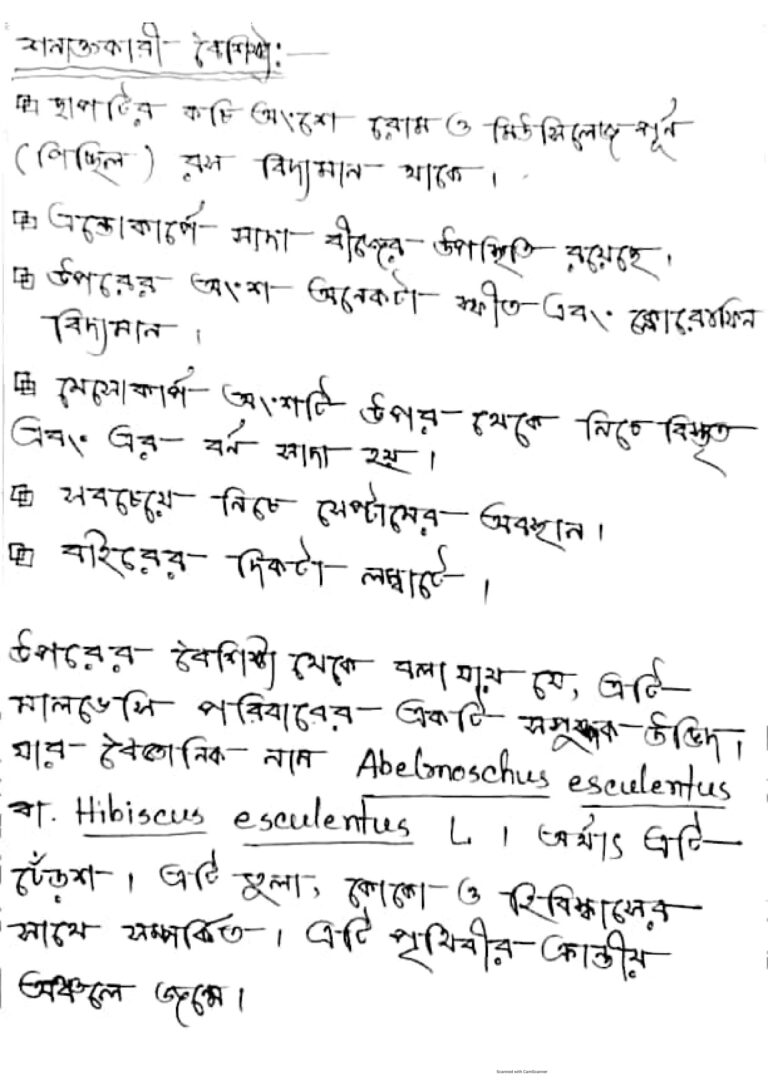 শনাক্তকারী বৈশিষ্ট্য:—
ছাপটির কচি অংশে রোম ও মিউসিলেজ পূর্ন
(পিচ্ছিল) রস বিদ্যমান থাকে।
এন্ডোকার্পে সাদা বীজের উপস্থিতি রয়েছে।
উপরের অংশ অনেকটা স্ফীত এবং ক্লোরেনকিন
বিদ্যমান।
মেসোকার্প অংশটি উপর থেকে নিচে বিস্তৃত
এবং এর বর্ন সাদা হয়।
সবচেয়ে নিচে সেপ্টামের অবস্থান।
বাহিরের দিকটা লম্বাটে।
উপরের বৈশিষ্ট্য থেকে বলা যায় যে, এটি
মালভেসি পরিবারের একটি সপুষ্পক উদ্ভিদ।
যার বৈজ্ঞানিক নাম Abelmoschus esculentus
বা. Hibiscus esculentus L। অর্থাৎ এটি
ঢেঁড়শ। এটি তুলা, কোকো ও হিবিস্কাসের
সাথে সম্পর্কিত। এটি পৃথিবীর ক্রান্তীয়
অঞ্চলে জন্মে।
Scanned with CamScanner